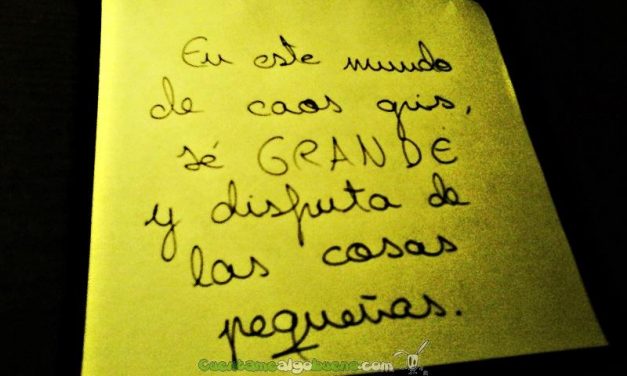 En este mundo
de caos gris,
sé GRANDE
y disfruta de
las cosas
pequeñas.
Cuentamealgobueno.com